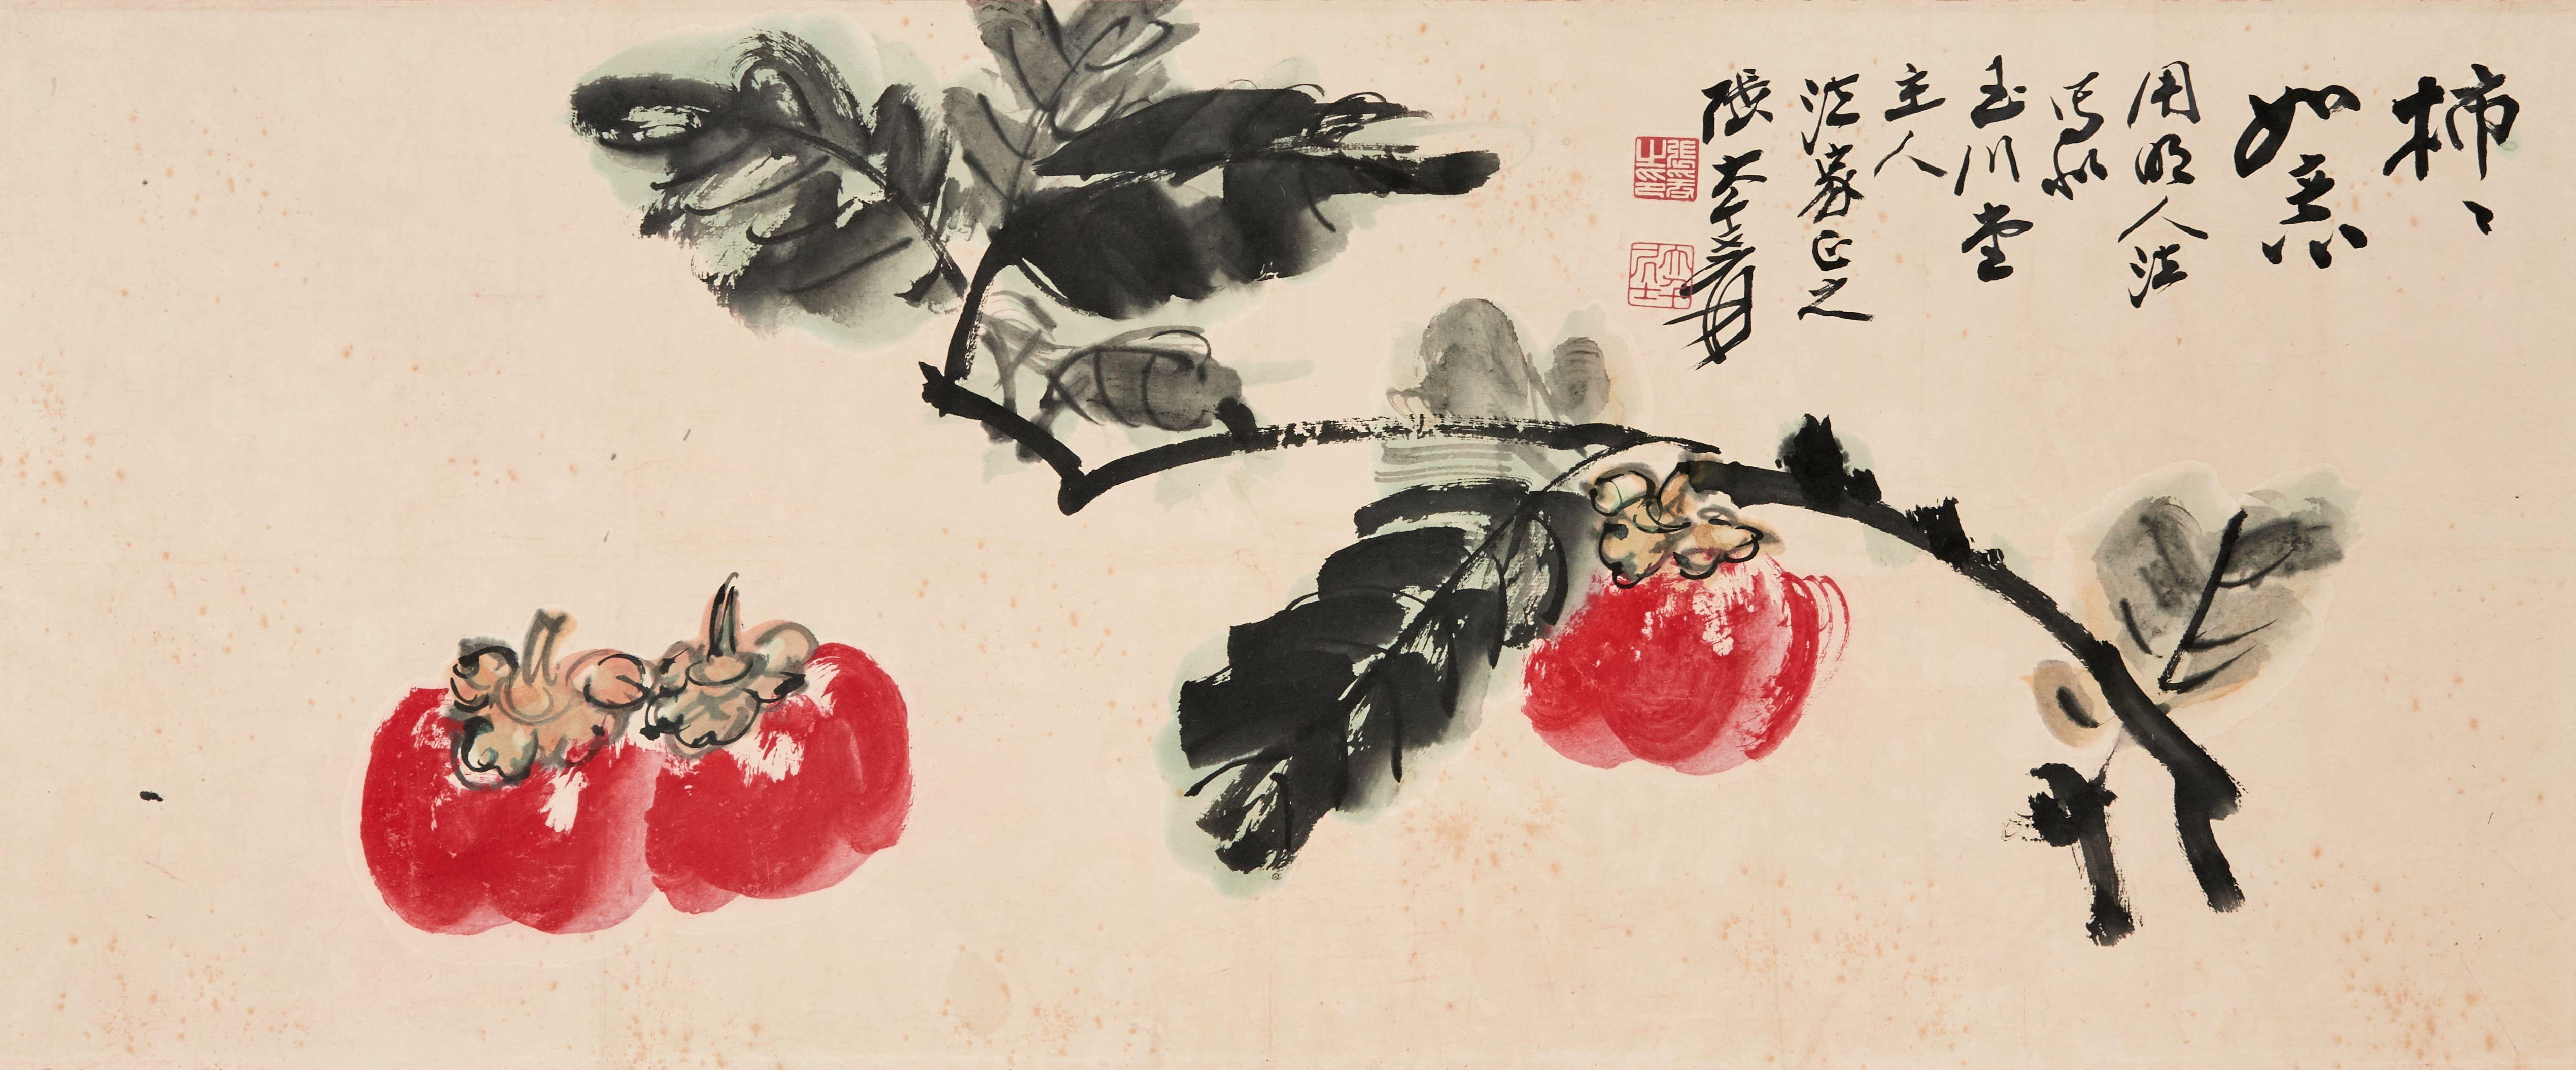 柿〻
如意
用明人法
寫似
玉川堂
主人
法家正之
張大千爰
張爰之印
大千居士